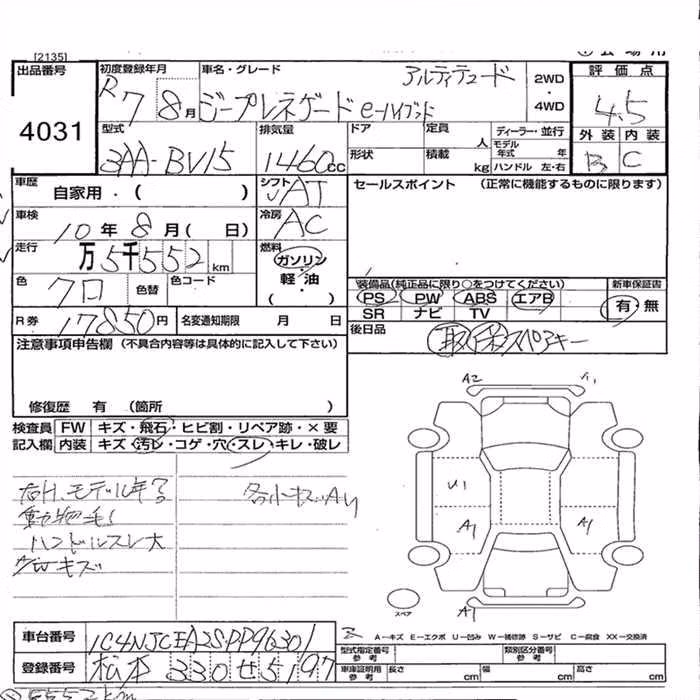 [2135]
出品番号
4031
初度登録年月
R7 8月
車名・グレード
アルティテュード
ジープレネゲード e-ハイブリッド
2WD
・
4WD
評価点
4.5
外装 内装
B C
型式
3AA-BV15
排気量
1460cc
ドア
形状
定員 人
積載 kg
ディーラー・並行
モデル年式 年
ハンドル 左・右
車歴
自家用・( )
シフト AT
車検
10年8月( 日)
冷房
AC
走行
万5千552km
燃料
ガソリン
軽油
( )
色 クロ
色替
色コード
R券 17850円
名変通知期限 月 日
セールスポイント (正常に機能するものに限ります)
装備品(純正品に限り○をつけてください)
PS PW ABS エアB
SR ナビ TV
新車保証書
有・無
後日品
取 保 スペアキー
注意事項申告欄 (不具合内容等は具体的に記入して下さい)
修復歴 有 (箇所 )
検査員 FW キズ・飛石・ヒビ割・リペア跡・×要
記入欄 内装 キズ・汚レ・コゲ・穴・スレ・キレ・破レ
右H.モデル年?
動物毛!
ハンドルスレ大
A/Wキズ
各小キズAU
A2
U1
A1
A1
スペア
A1
A－キズ E－エクボ U－凹み W－補修跡 S－サビ C－腐食 XX－交換済
車台番号 1C4NJCEA2SPP96301
登録番号 松本 330 せ 5197
型式指定番号 参考
類別区分番号 参考
車庫証明用 参考
長さ cm
幅 cm
高さ cm